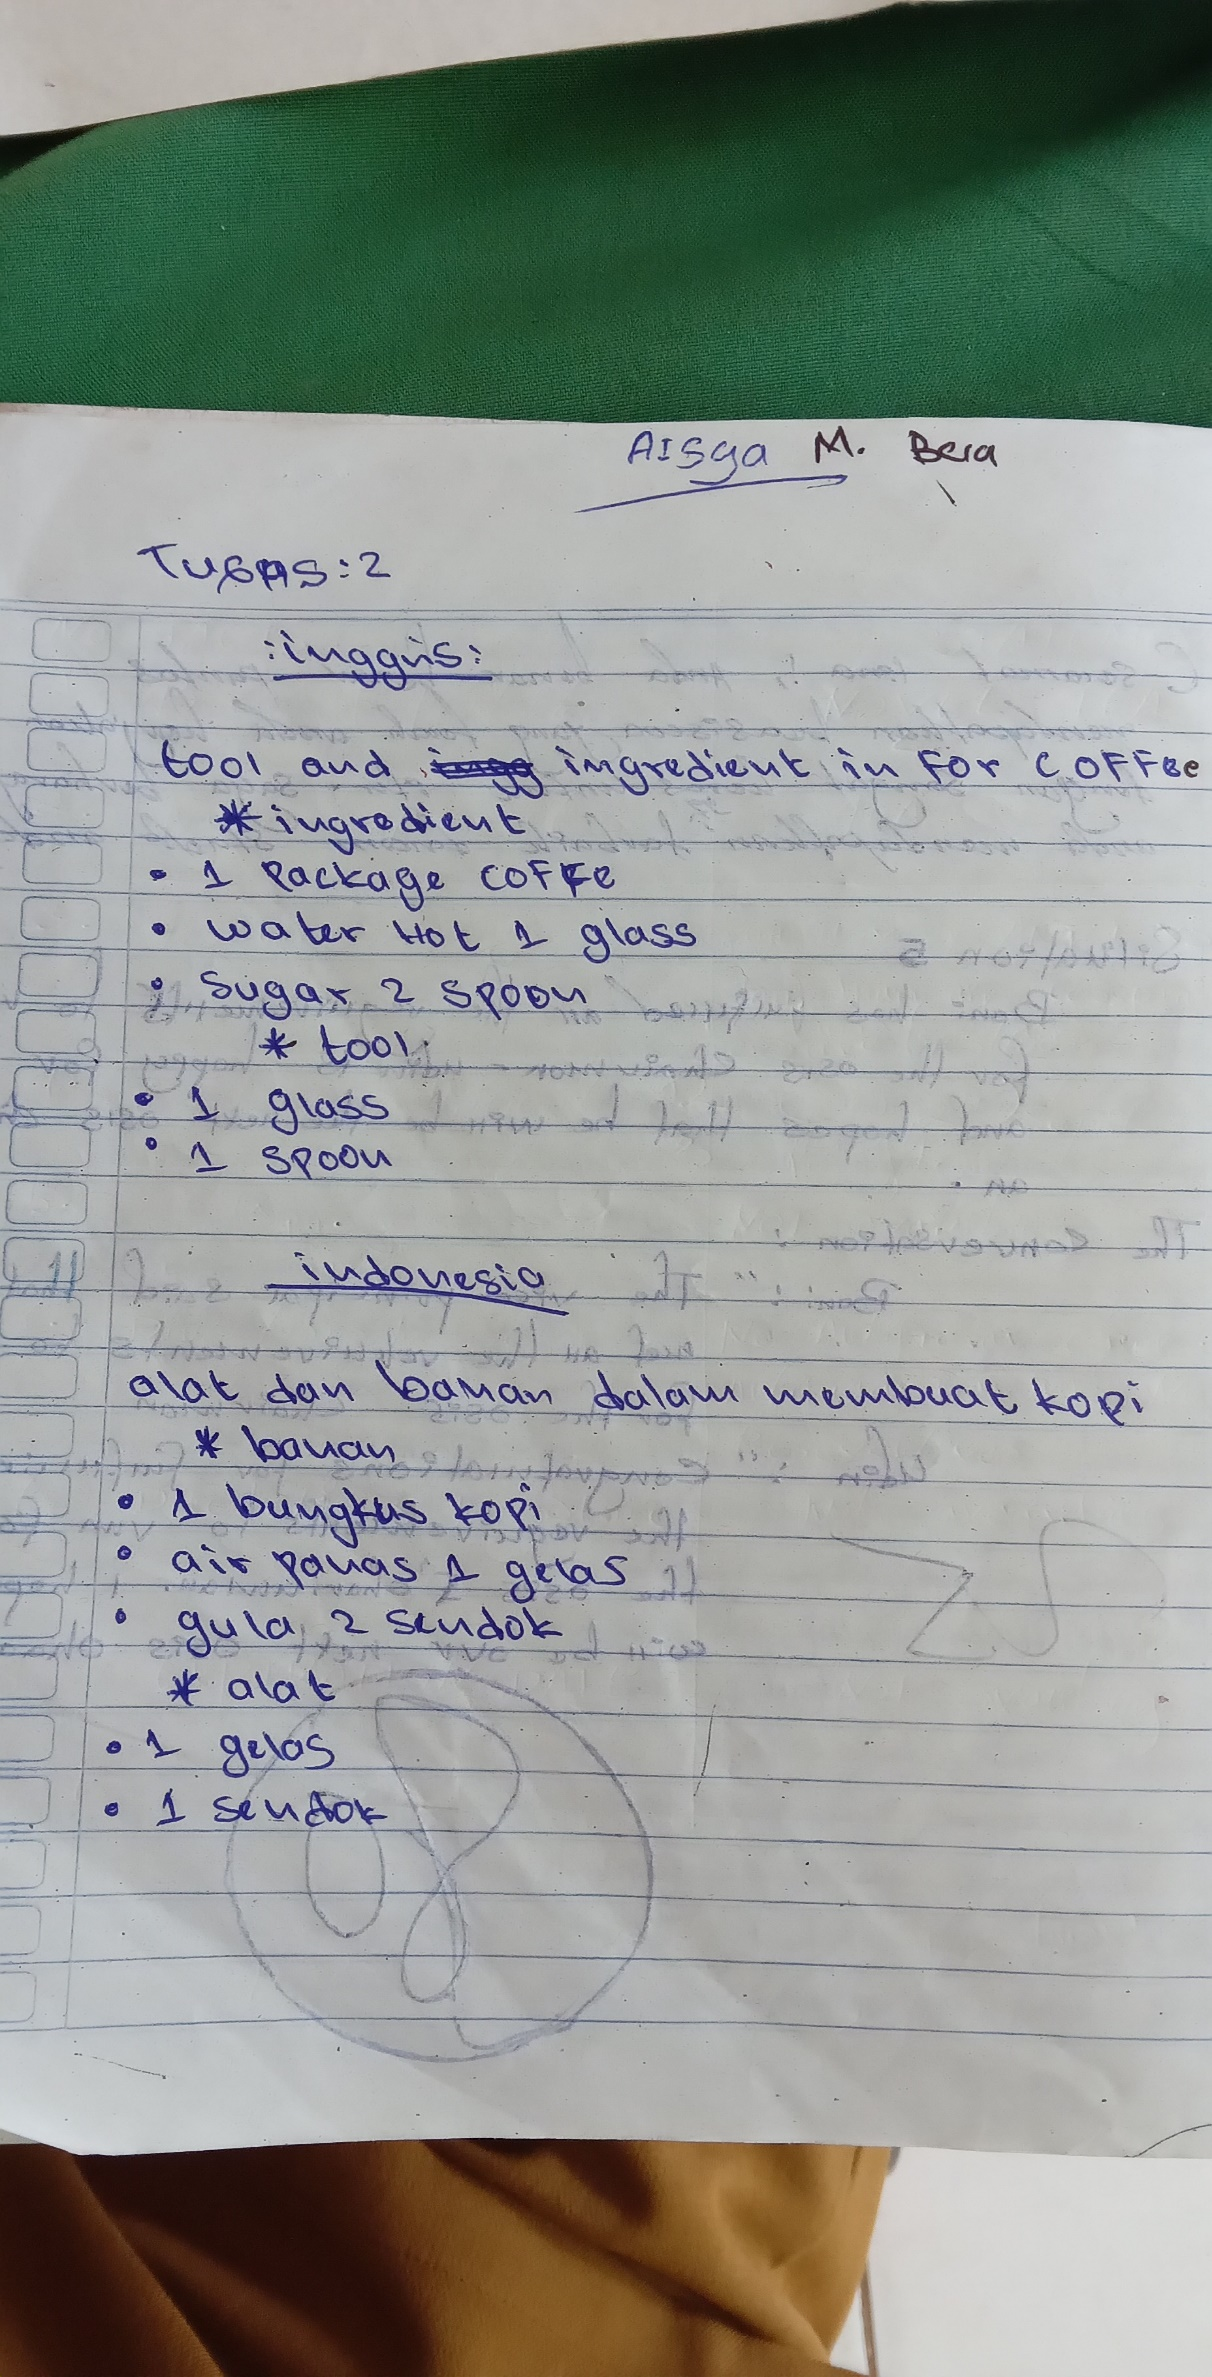 AISya M. Bera
TUGAS : 2
: inggris :
tool and ingredient in For COFFee
* ingredient
• 1 Package COFFe
• water Hot 1 glass
• Sugar 2 spoon
* tool
• 1 glass
• 1 spoon
indonesia
alat dan bahan dalam membuat kopi
* bahan
• 1 bungkus kopi
• air panas 1 gelas
• gula 2 sendok
* alat
• 1 gelas
• 1 sendok